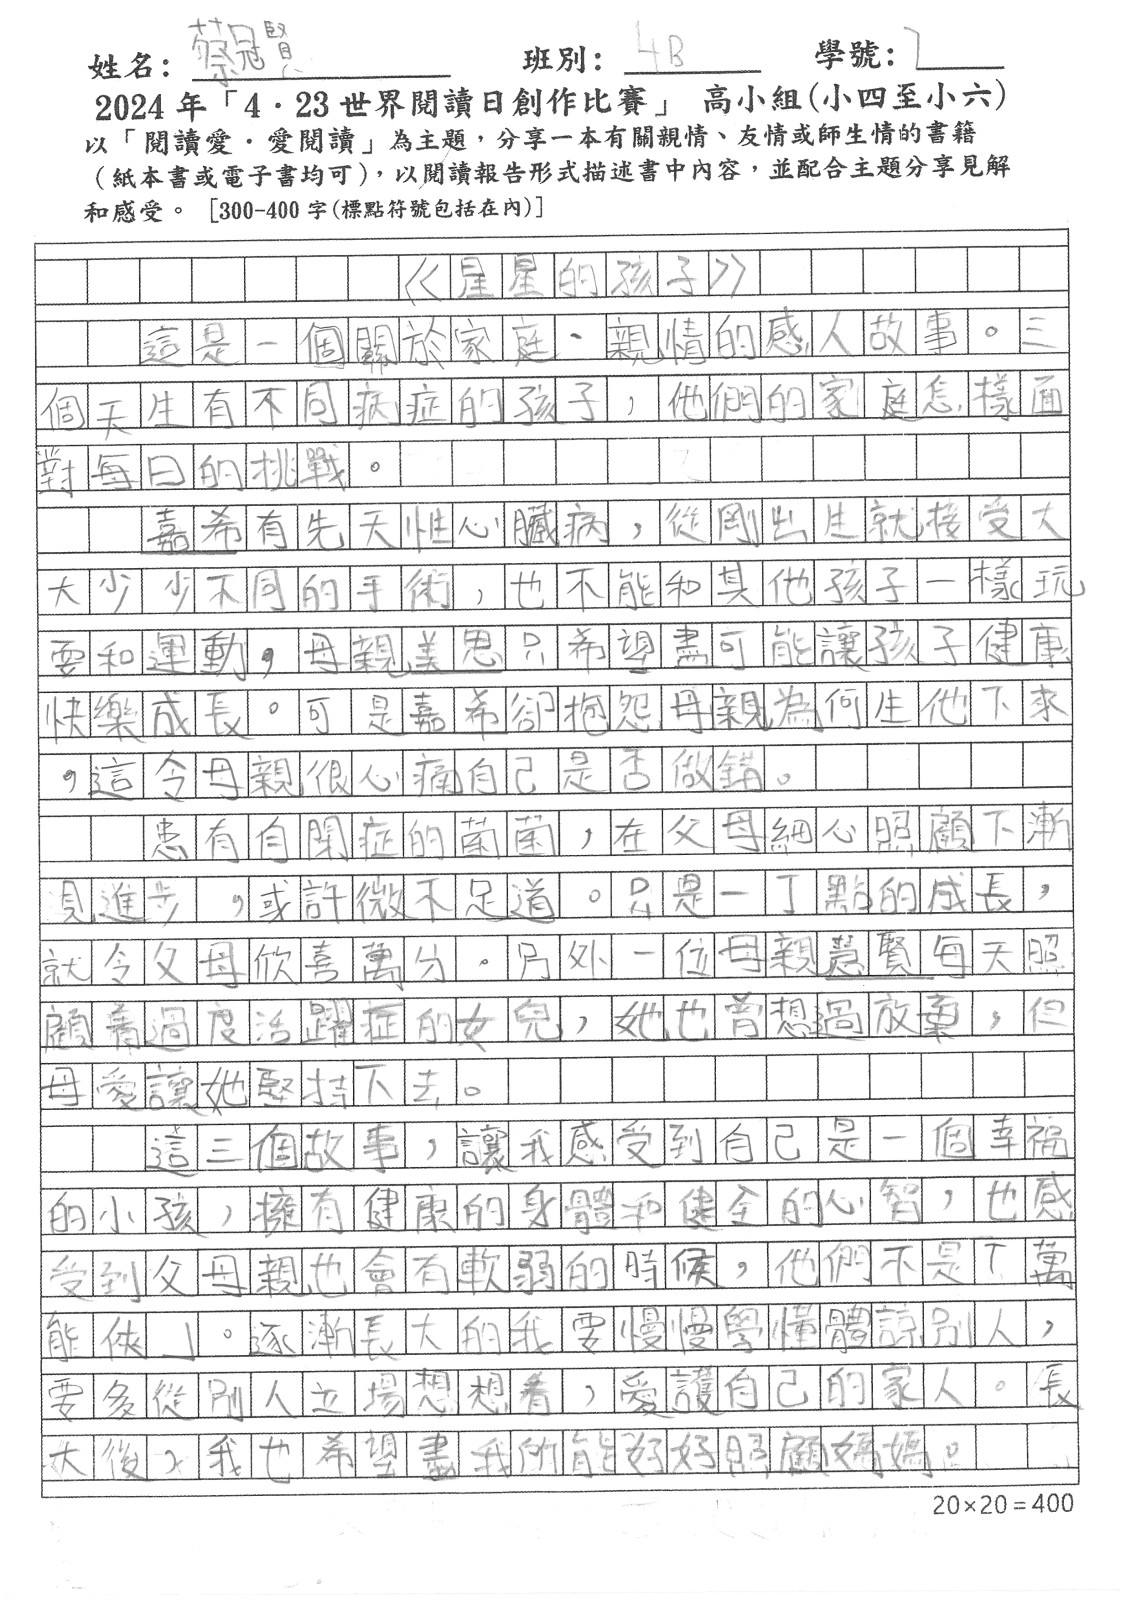 姓名：蔡冠賢 班別：4B 學號：7
2024 年「4．23 世界閱讀日創作比賽」 高小組(小四至小六)
以「閱讀愛．愛閱讀」為主題，分享一本有關親情、友情或師生情的書籍
(紙本書或電子書均可)，以閱讀報告形式描述書中內容，並配合主題分享見解
和感受。 [300-400 字(標點符號包括在內)]
《星星的孩子》
這是一個關於家庭、親情的感人故事。三
個天生有不同病症的孩子，他們的家庭怎樣面
對每日的挑戰。
嘉希有先天性心臟病，從剛出生就接受大
大少少不同的手術，也不能和其他孩子一樣玩
耍和運動，母親美思只希望盡可能讓孩子健康
快樂成長。可是嘉希卻抱怨母親為何生他下來
，這令母親很心痛自己是否做錯。
患有自閉症的菌菌，在父母細心照顧下漸
見進步，或許微不足道。只是一丁點的成長，
就令父母欣喜萬分。另外一位母親慧賢每天照
顧着過度活躍症的女兒，她也曾想過放棄，但
母愛讓她堅持下去。
這三個故事，讓我感受到自己是一個幸福
的小孩，擁有健康的身體和健全的心智，也感
受到父母親也會有軟弱的時候，他們不是「萬
能俠」。逐漸長大的我要慢慢學懂體諒別人，
要多從別人立場想想看，愛護自己的家人。長
大後，我也希望盡我所能好好照顧媽媽。
20×20＝400